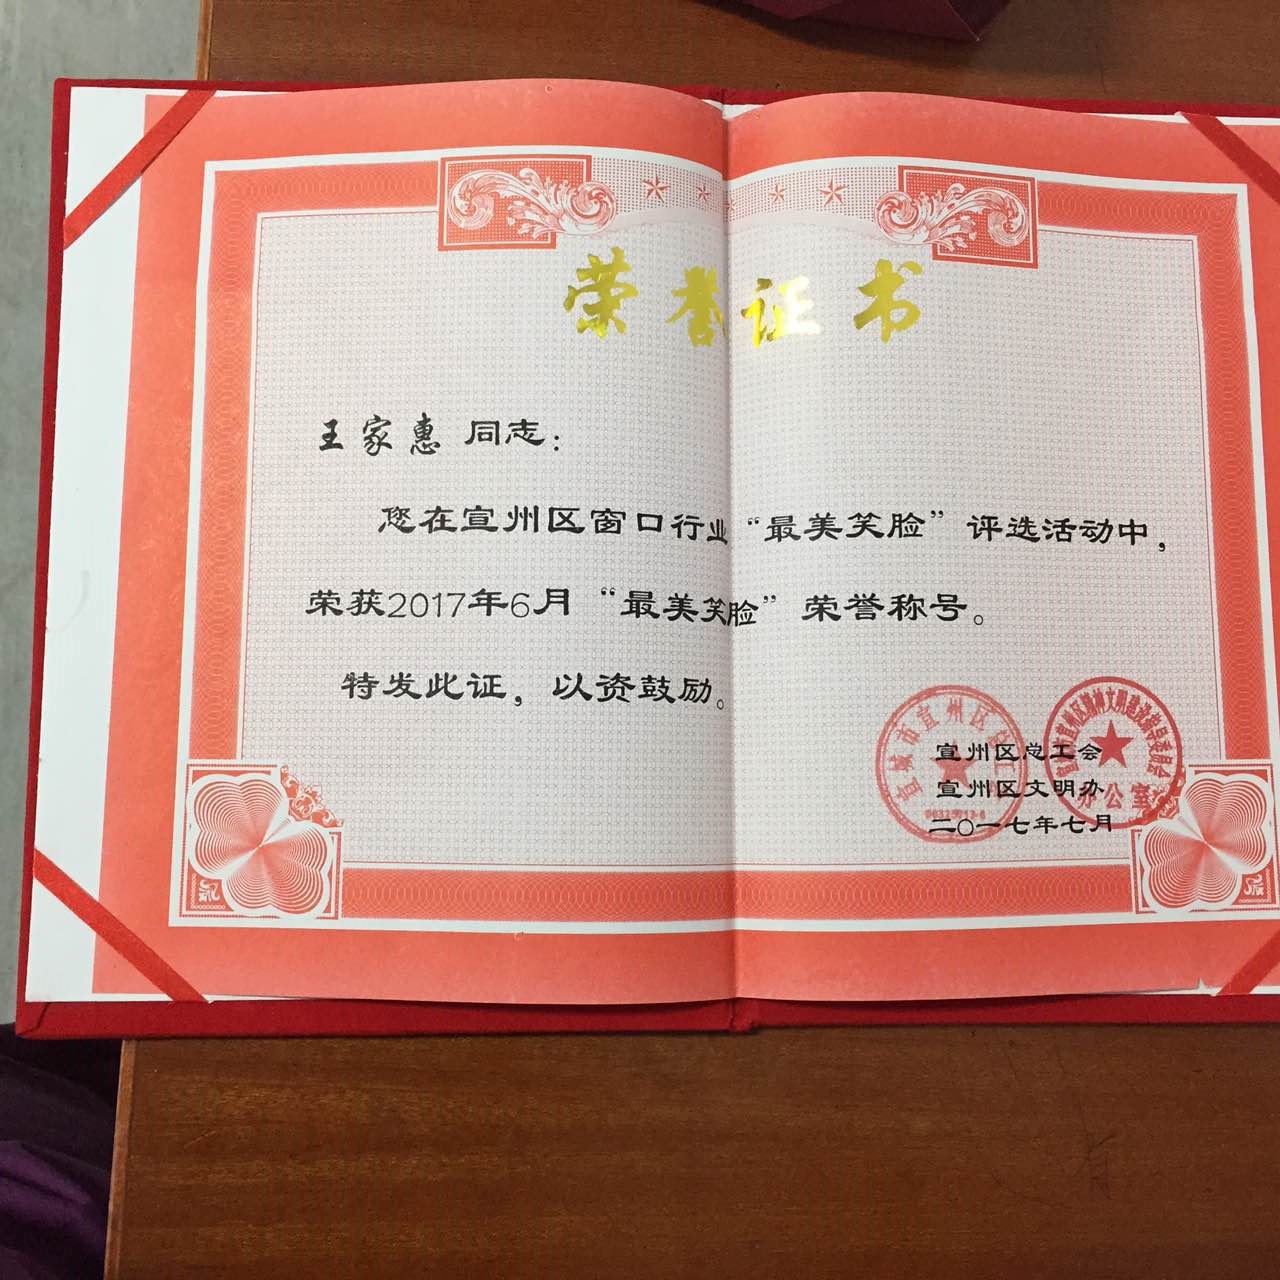 荣誉证书
王家惠 同志：
您在宣州区窗口行业“最美笑脸”评选活动中，
荣获2017年6月“最美笑脸”荣誉称号。
特发此证，以资鼓励。
宣州区总工会
宣州区文明办
二〇一七年七月
宣城市宣州区总工会
宣城市宣州区精神文明建设指导委员会
办公室